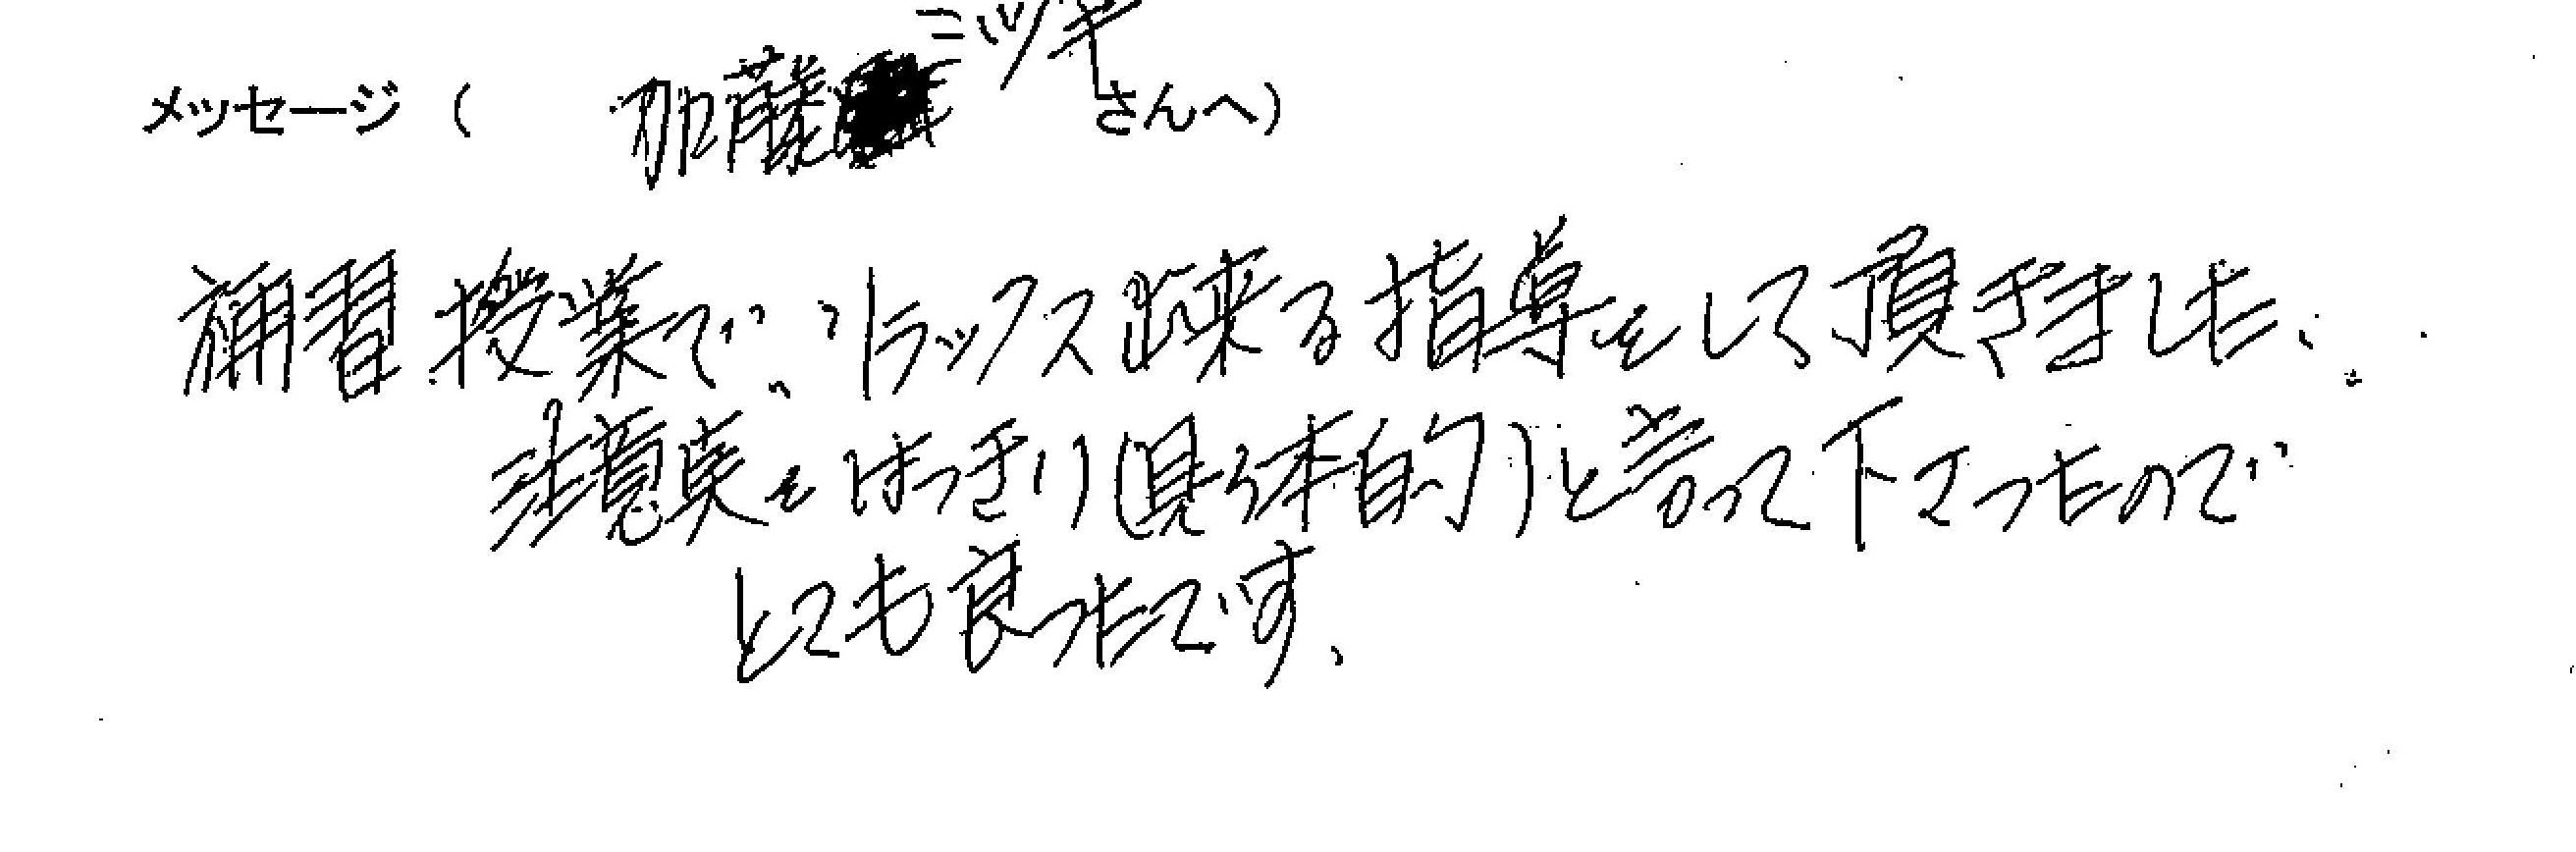 メッセージ（加藤ミツキさんへ）
補習授業で、リラックス出来る指導をして頂きました。
注意点をはっきり（具体的）と言って下さったので
とても良ったです、